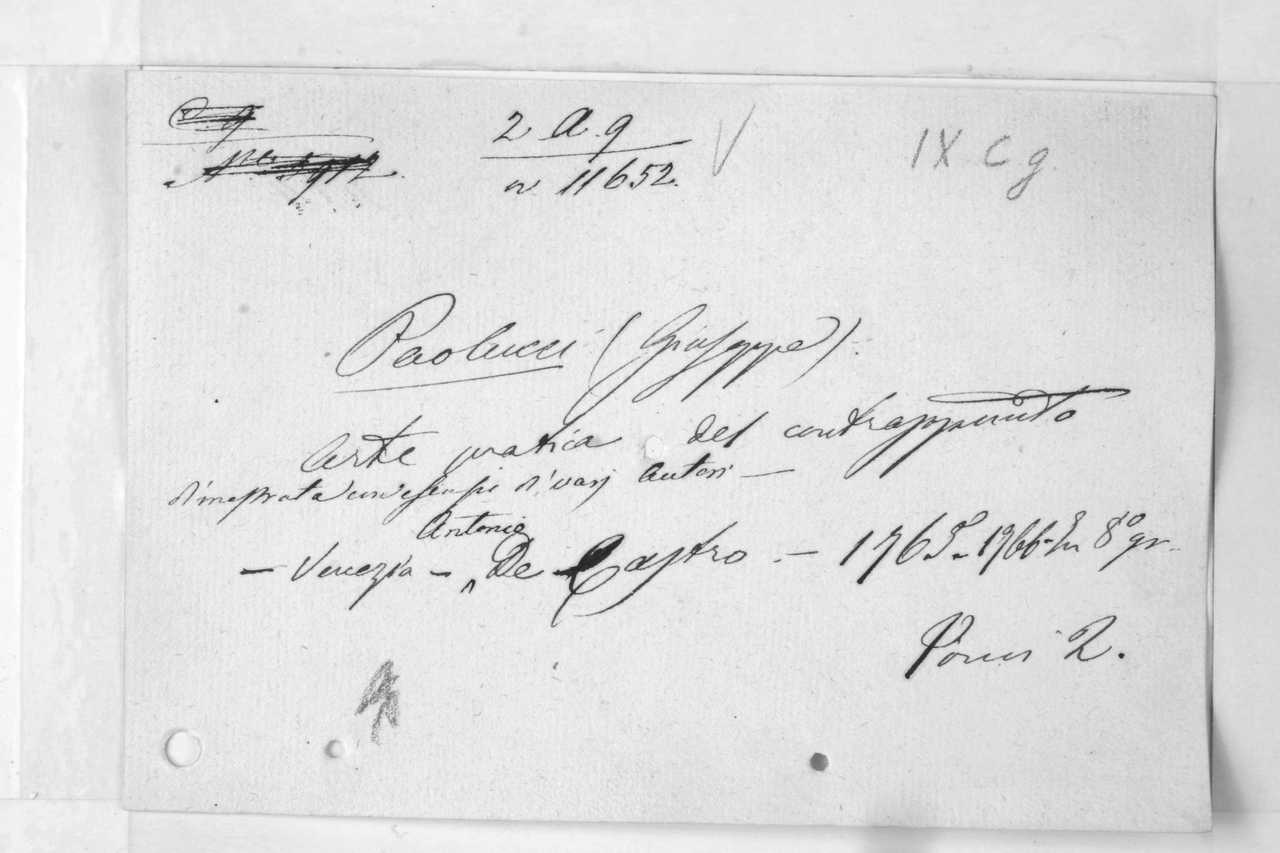 2 A. 9
n. 11652.
IX C g.
Paolucci (Giuseppe).
Arte pratica del contrappunto
dimostrata con esempi di varj Autori —
— Venezia — Antonio De Castro. — 1765-1766 - In 8º gr.
Tomi 2.